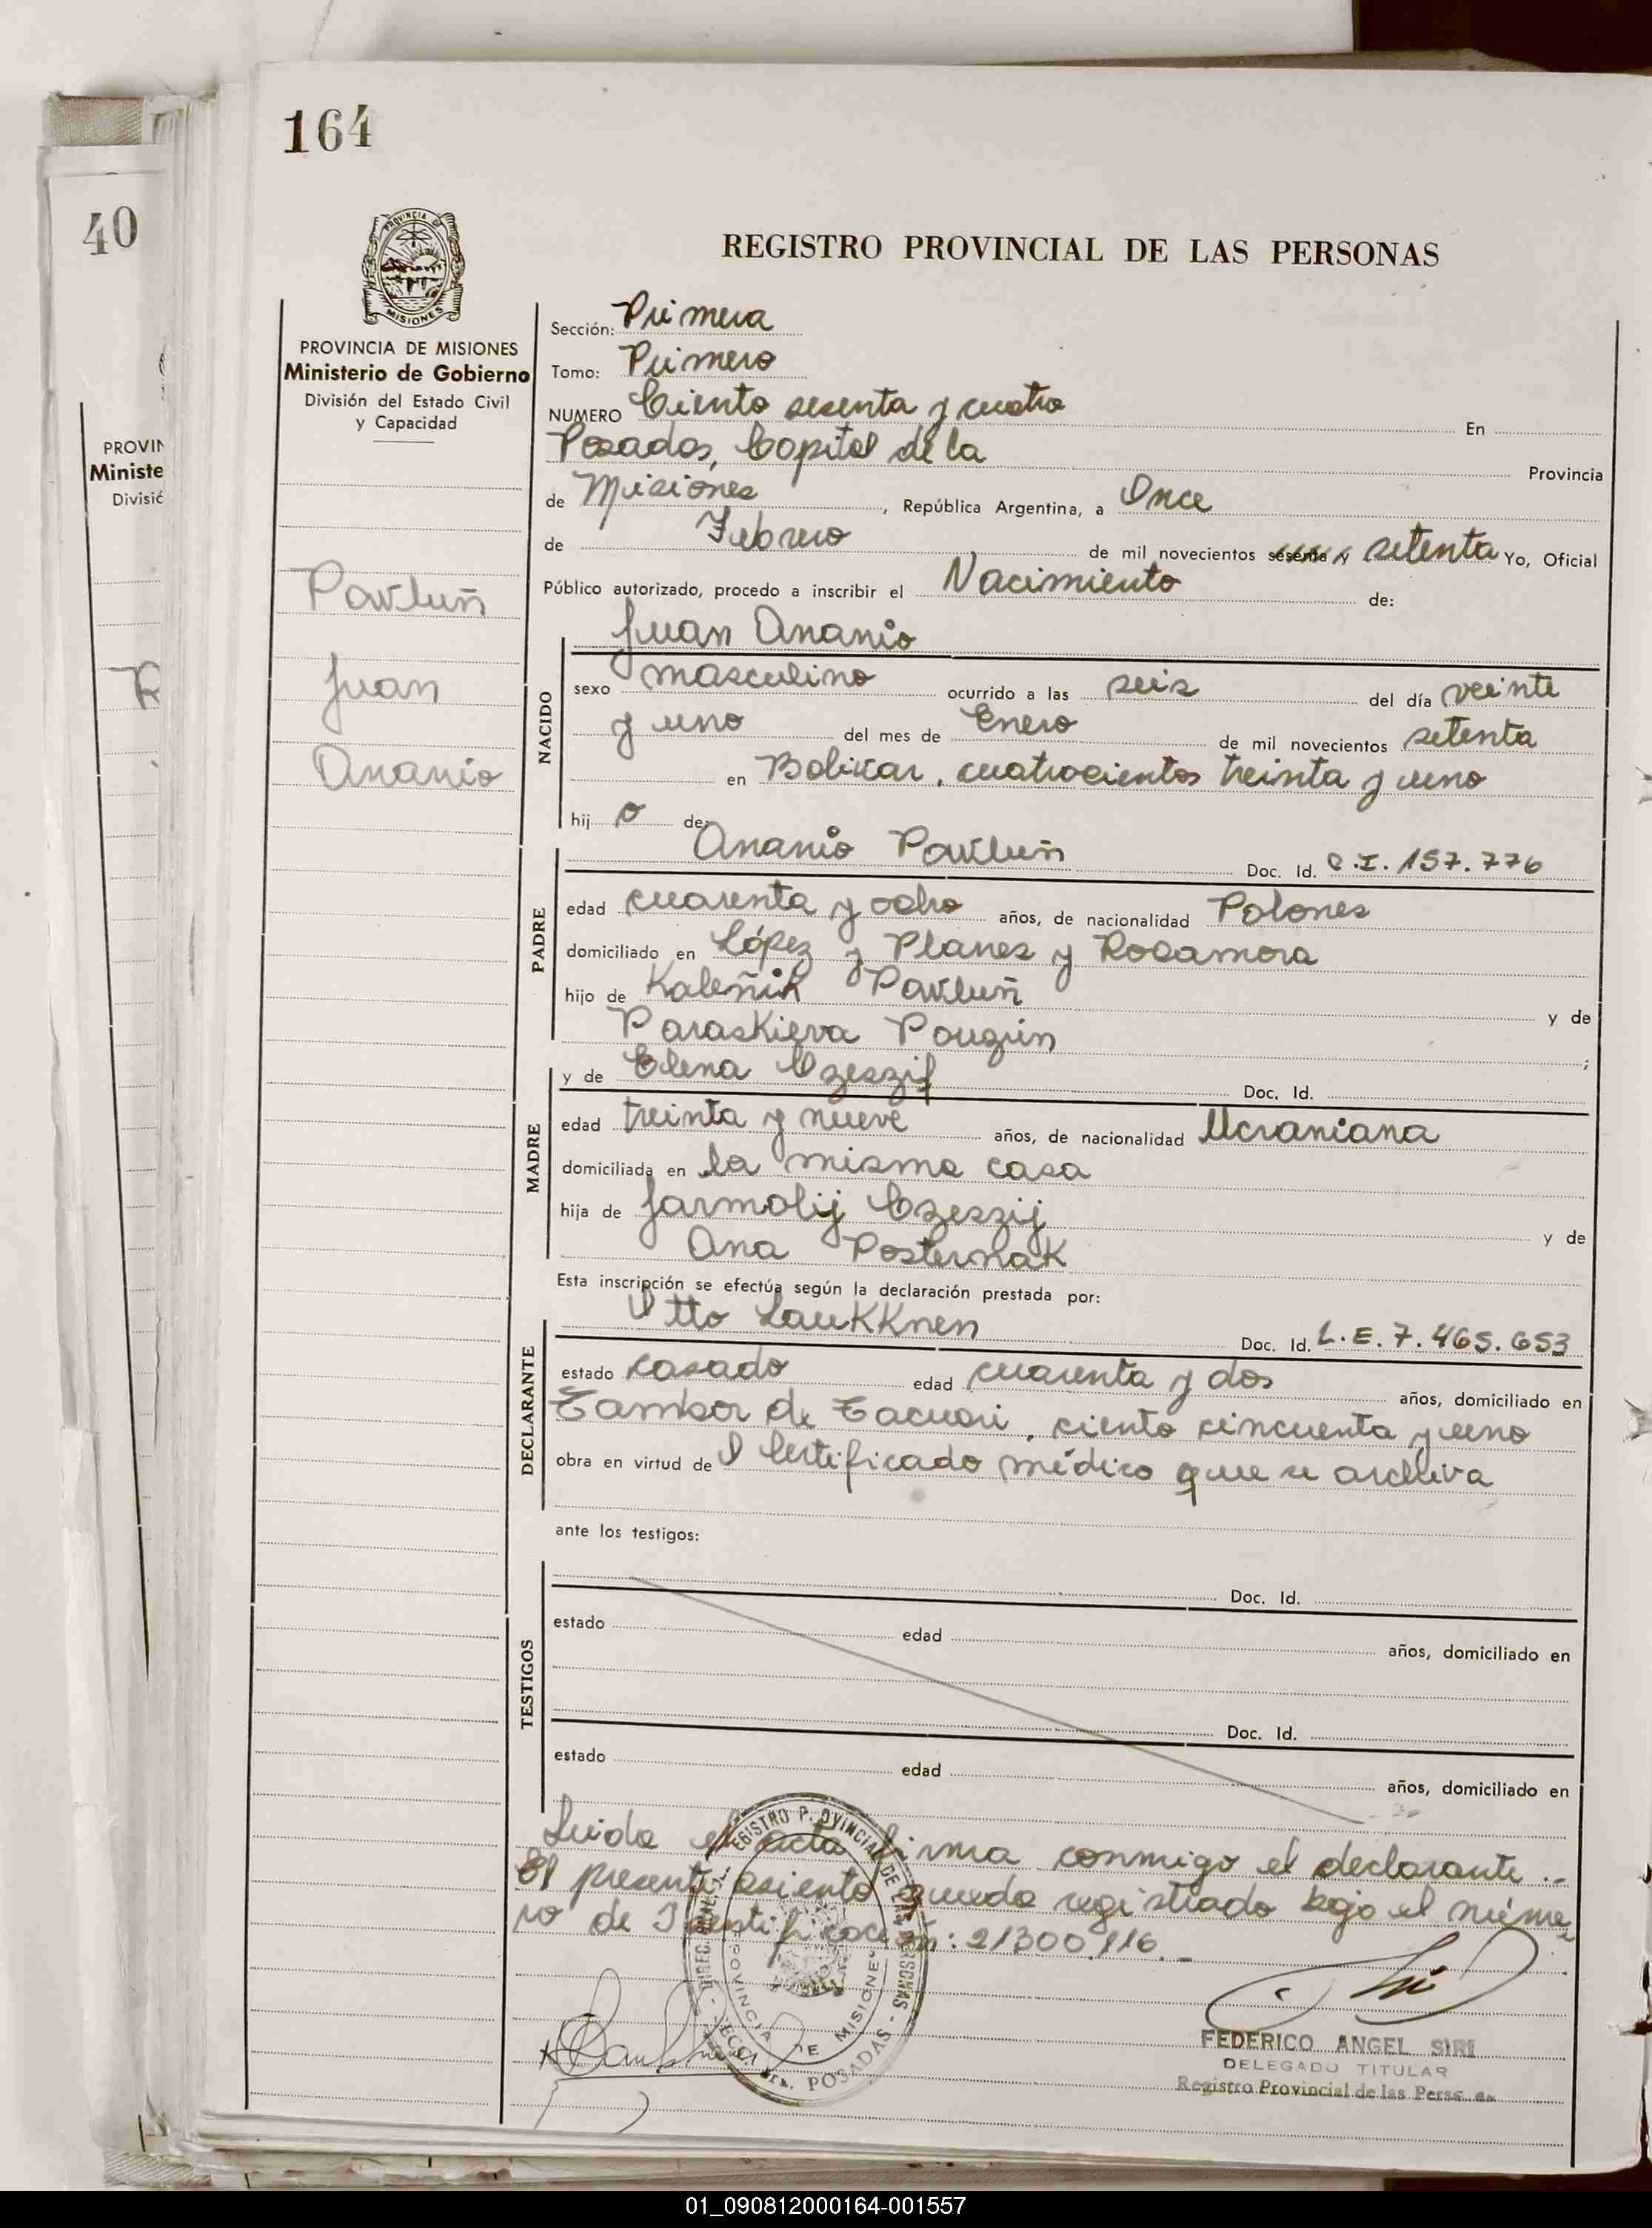 164
40
PROVINCIA DE
MISIONES
REGISTRO PROVINCIAL DE LAS PERSONAS
PROVINCIA DE MISIONES
Ministerio de Gobierno
División del Estado Civil
y Capacidad
PROVIN
Ministe
Divisić
Sección: Primera
Tomo: Primero
NUMERO Ciento sesenta y cuatro En
Posadas, Capital de la Provincia
de Misiones, República Argentina, a Once
de Febrero de mil novecientos sesenta y setenta Yo, Oficial
Público autorizado, procedo a inscribir el Nacimiento de:
Pavluñ
Juan
Ananio
NACIDO
Juan Ananio
sexo masculino ocurrido a las seis del día veinte
y uno del mes de Enero de mil novecientos setenta
en Bolivar, cuatrocientos treinta y uno
hij o de:
PADRE
Ananio Pavluñ Doc. Id. C.I. 157.776
edad cuarenta y ocho años, de nacionalidad Polones
domiciliado en López y Planes y Rocamora
hijo de Kaleñik Pavluñ y de
Paraskieva Pougún ;
MADRE
y de Elena Czeszij Doc. Id.
edad treinta y nueve años, de nacionalidad Ucraniana
domiciliada en la misma casa
hija de Jarmolij Czeszij y de
Ana Posternak
Esta inscripción se efectúa según la declaración prestada por:
DECLARANTE
Otto Laukknen Doc. Id. L.E. 7.465.653
estado casado edad cuarenta y dos años, domiciliado en
Tambor de Tacuari, ciento cincuenta y uno
obra en virtud de l Certificado médico que se archiva
ante los testigos:
TESTIGOS
Doc. Id.
estado edad años, domiciliado en
Doc. Id.
estado edad años, domiciliado en
Leida el acta firma conmigo el declarante..
El presente asiento queda registrado bajo el núme
ro de Identificación: 21300.116._
REGISTRO PROVINCIAL DE LAS PERSONAS
PROVINCIA DE MISIONES
POSADAS
FEDERICO ANGEL SIRI
DELEGADO TITULAR
Registro Provincial de las Persc as
01_090812000164-001557